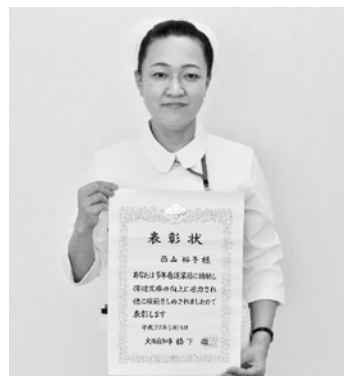 表彰状
西山裕子様
あなたは多年看護業務に精励し
保健医療の向上に尽力され
他に模範を示されましたので
表彰します
平成22年5月18日
大阪府知事 橋下 徹